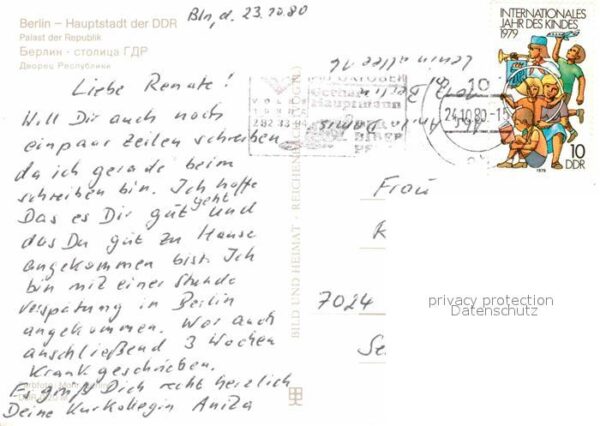 Berlin – Hauptstadt der DDR
Palast der Republik
Берлин · столица ГДР
Дворец Республики
Bln, d. 23.10.80
Liebe Renate!
Will Dir auch noch
ein paar Zeilen schreiben
da ich gerade beim
schreiben bin. Ich hoffe
Das es Dir gut geht und
das Du gut zu Hause
angekommen bist. Ich
bin mit einer Stunde
verspätung in Berlin
angekommen. War auch
anschließend 3 Wochen
Krank geschrieben.
Es grüß Dich recht herzlich
Deine Kurkollegin Anita
BILD UND HEIMAT · REICHENBACH
Leninallee 76
Berlin
Anita
Gerhart
Hauptmann
24.10.80-15
INTERNATIONALES
JAHR DES KINDES
1979
10
DDR
1979
Frau
7024
privacy protection
Datenschutz